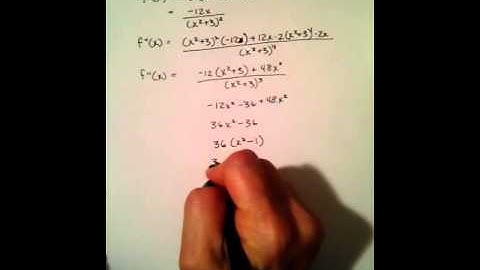 = -12x / (x²+3)²
f"(x) = (x²+3)²(-12) + 12x · 2(x²+3)' · 2x / (x²+3)⁴
f"(x) = -12(x²+3) + 48x² / (x²+3)³
-12x² - 36 + 48x²
36x² - 36
36 (x² - 1)
3